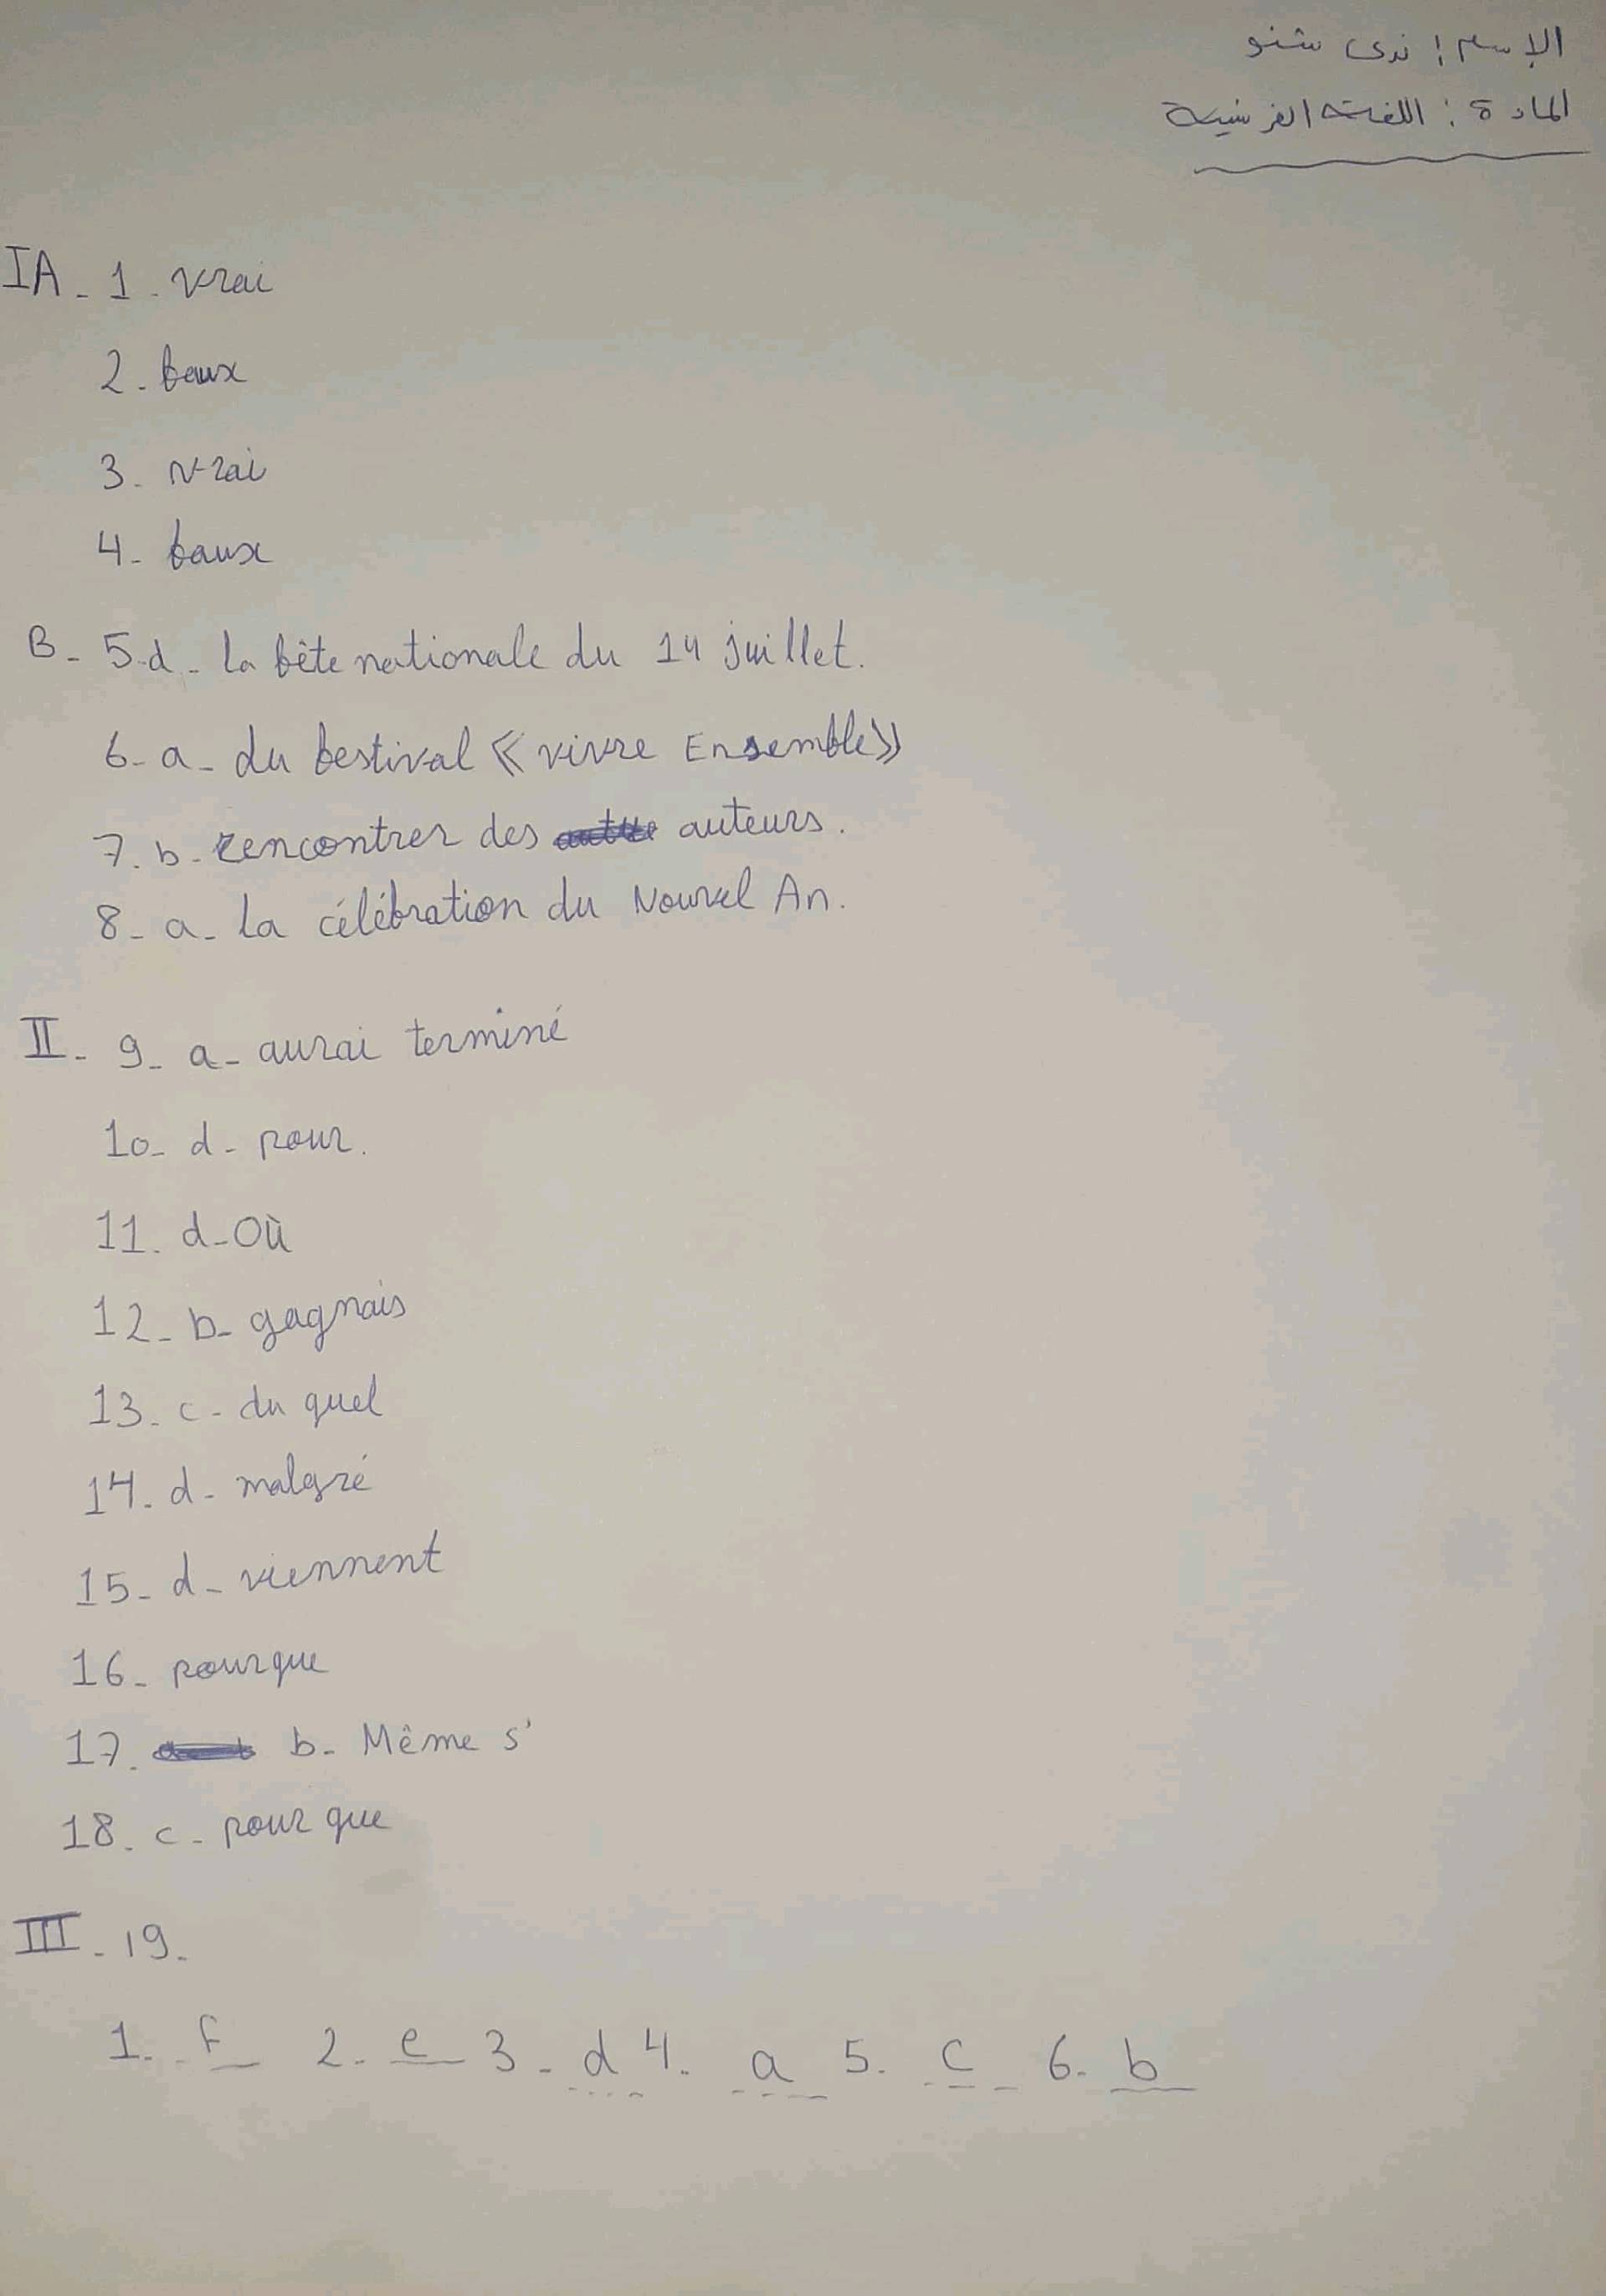 الإسم : ندى شنو
المادة : اللغة الفرنسية
IA - 1 - vrai
2 - faux
3 - vrai
4 - faux
B - 5-d - la fête nationale du 14 juillet.
6 - a - du festival « vivre Ensemble »
7. b - rencontrer des auteurs.
8 - a - La célébration du Nouvel An.
II - 9 - a - aurai terminé
10 - d - pour.
11. d - Où
12 - b - gagnais
13 - c - du quel
14. d - malgré
15 - d - viennent
16 - pourque
17. b - Même s'
18. c - pour que
III - 19.
1. f 2. e 3. d 4. a 5. c 6. b